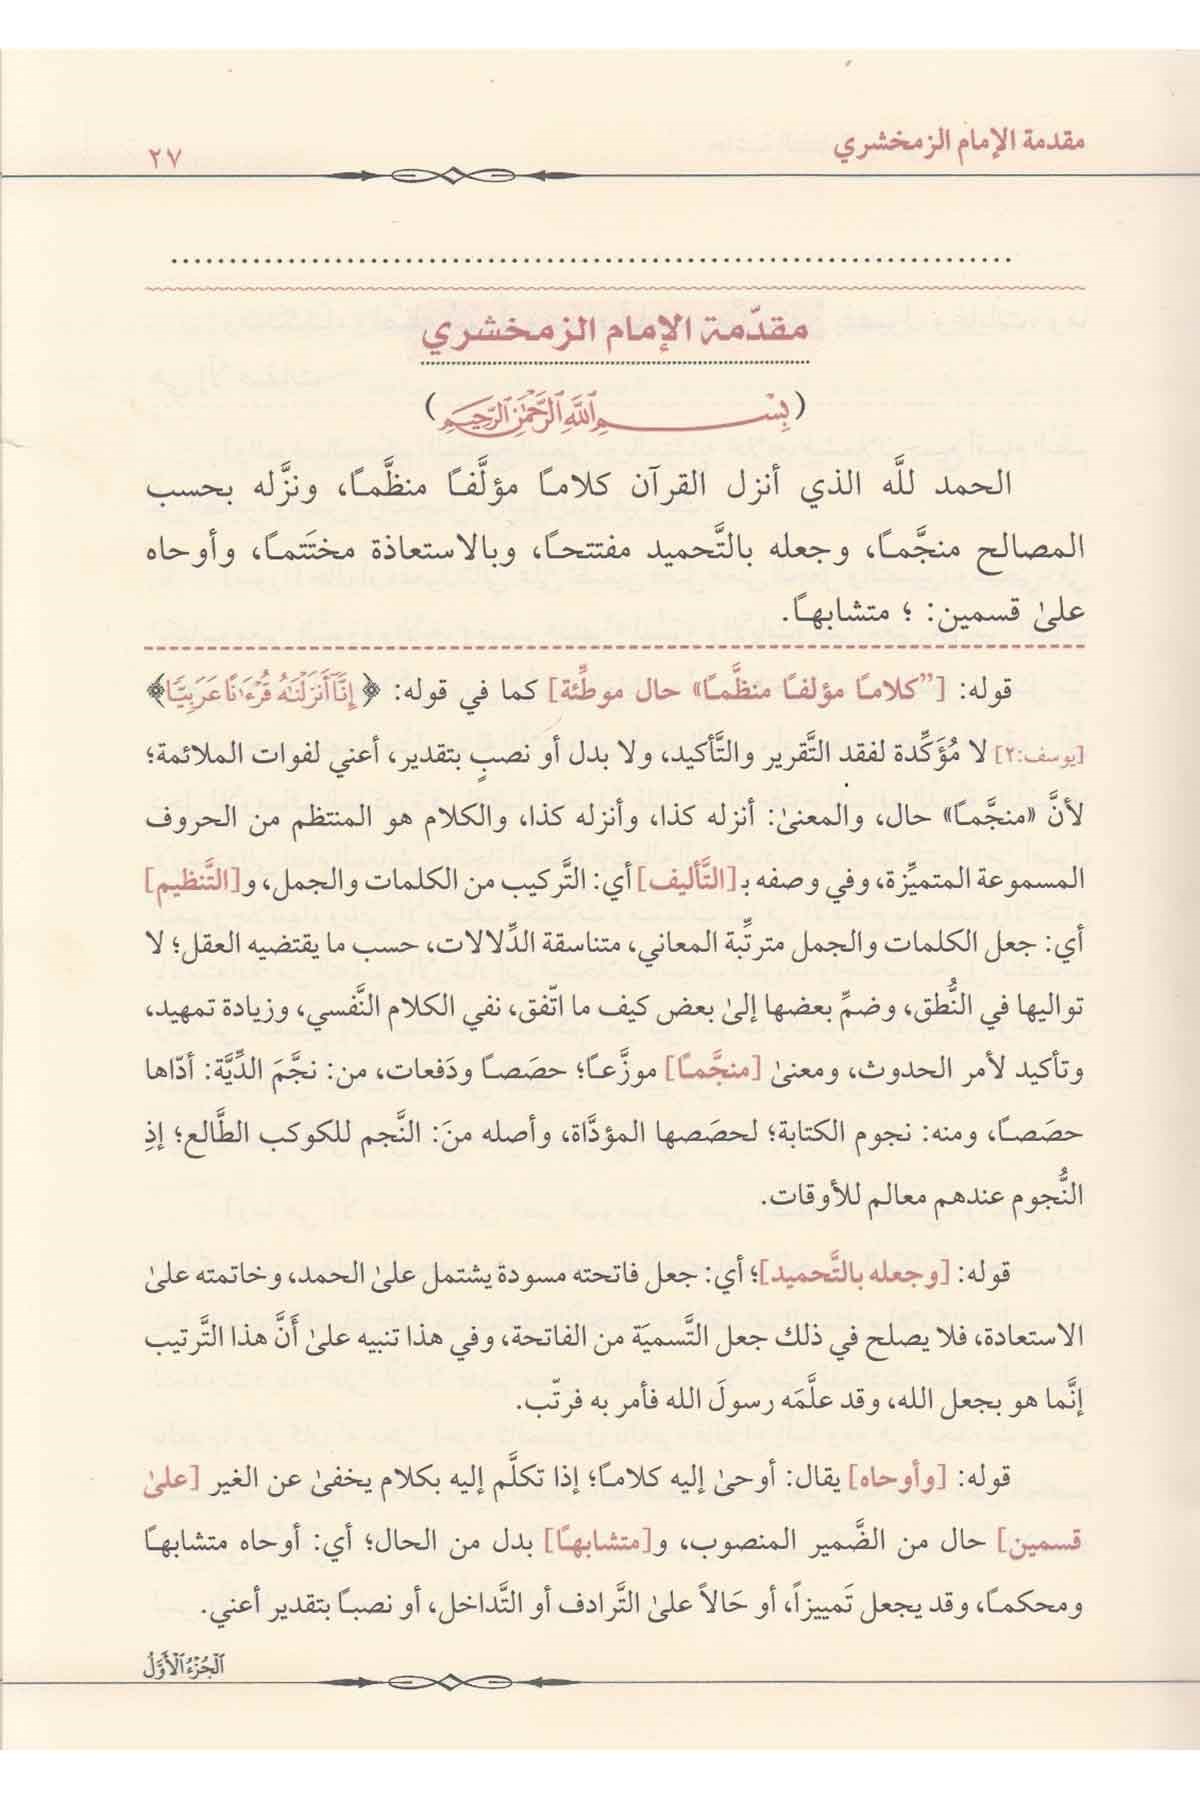 مقدمة الإمام الزمخشري
٢٧
مقدّمة الإمام الزمخشري
(بِسْمِ اللَّهِ الرَّحْمَٰنِ الرَّحِيمِ)
الحمد للَّه الذي أنزل القرآن كلامًا مؤلَّفًا منظَّمًا، ونزَّله بحسب
المصالح منجَّمًا، وجعله بالتَّحميد مفتتحًا، وبالاستعاذة مختَتمًا، وأوحاه
علىٰ قسمين: ؛ متشابهًا.
قوله: [”كلامًا مؤلفًا منظَّمًا» حال موطِّئة] كما في قوله: ﴿إِنَّآ أَنزَلْنَٰهُ قُرْءَٰنًا عَرَبِيًّا﴾
[يوسف:٢] لا مُؤَكِّدة لفقد التَّقرير والتَّأكيد، ولا بدل أو نصبٍ بتقدير، أعني لفوات الملائمة؛
لأنَّ «منجَّمًا» حال، والمعنىٰ: أنزله كذا، وأنزله كذا، والكلام هو المنتظم من الحروف
المسموعة المتميِّزة، وفي وصفه بـ [التَّأليف] أي: التَّركيب من الكلمات والجمل، و[التَّنظيم]
أي: جعل الكلمات والجمل مترتِّبة المعاني، متناسقة الدِّلالات، حسب ما يقتضيه العقل؛ لا
تواليها في النُّطق، وضمِّ بعضها إلىٰ بعض كيف ما اتّفق، نفي الكلام النَّفسي، وزيادة تمهيد،
وتأكيد لأمر الحدوث، ومعنىٰ [منجَّمًا] موزَّعًا؛ حصَصًا ودَفعات، من: نجَّمَ الدِّيَّة: أدّاها
حصَصًا، ومنه: نجوم الكتابة؛ لحصَصها المؤدَّاة، وأصله منَ: النَّجم للكوكب الطَّالع؛ إذِ
النُّجوم عندهم معالم للأوقات.
قوله: [وجعله بالتَّحميد]؛ أي: جعل فاتحته مسودة يشتمل علىٰ الحمد، وخاتمته علىٰ
الاستعادة، فلا يصلح في ذلك جعل التَّسميَة من الفاتحة، وفي هذا تنبيه علىٰ أَنَّ هذا التَّرتيب
إنَّما هو بجعل الله، وقد علَّمَه رسولَ الله فأمر به فرتّب.
قوله: [وأوحاه] يقال: أوحىٰ إليه كلامًا؛ إذا تكلَّم إليه بكلام يخفىٰ عن الغير [علىٰ
قسمين] حال من الضَّمير المنصوب، و[متشابهًا] بدل من الحال؛ أي: أوحاه متشابهًا
ومحكمًا، وقد يجعل تَمييزاً، أو حَالاً علىٰ التَّرادف أو التَّداخل، أو نصبًا بتقدير أعني.
الْجُزْءُ الْأَوَّلُ